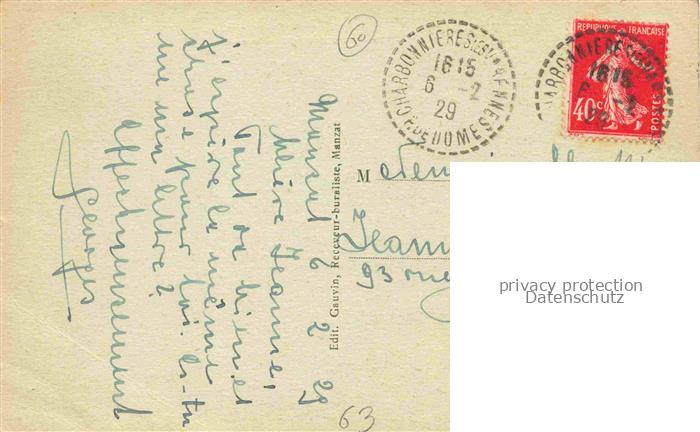 60
CHARBONNIERES-LES-VARENNES
PUY-DE-DOME
16 15
6 -2
29
REPUBLIQUE FRANÇAISE
40c
POSTES
CHARBONNIERES
16 15
Manzat 6 2 29
Chère Jeanne,
Tout va bien et
j'espère la même
chose pour toi. As-tu
eu ma lettre?
Affectueusement
Georges
Edit. Gauvin, Receveur-buraliste, Manzat
M
93 rue
63
privacy protection
Datenschutz